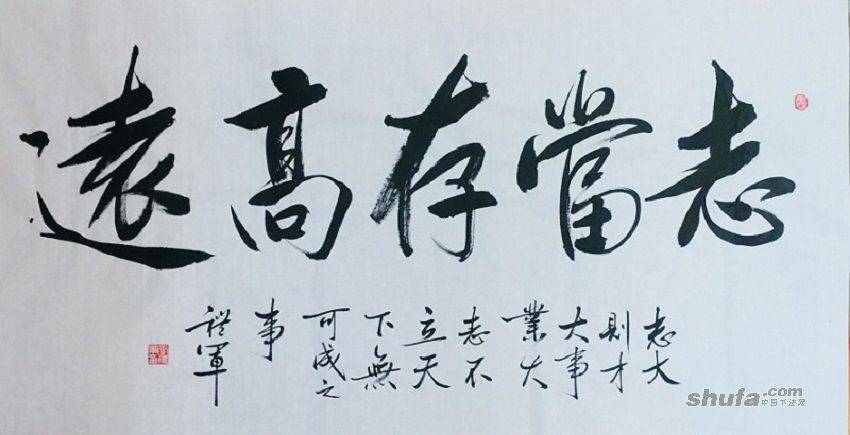 志當存高遠
志大
則才
大事
業大
志不
立天
下無
可成之
事
禮軍
shufa.com
中国书法网